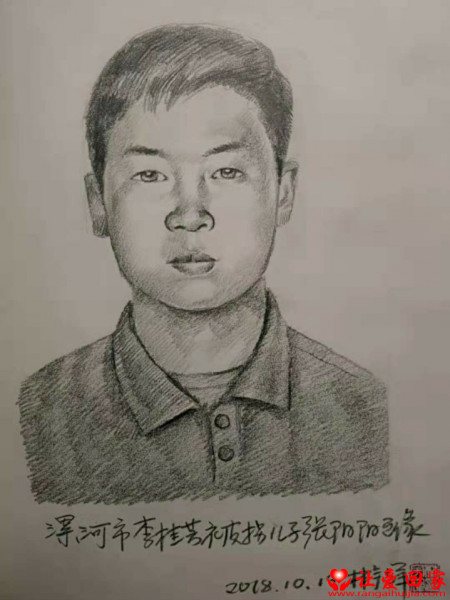 漯河市李桂英被拐儿子张阳阳画像
2018.10.1
让爱回家
www.rangaihuijia.com